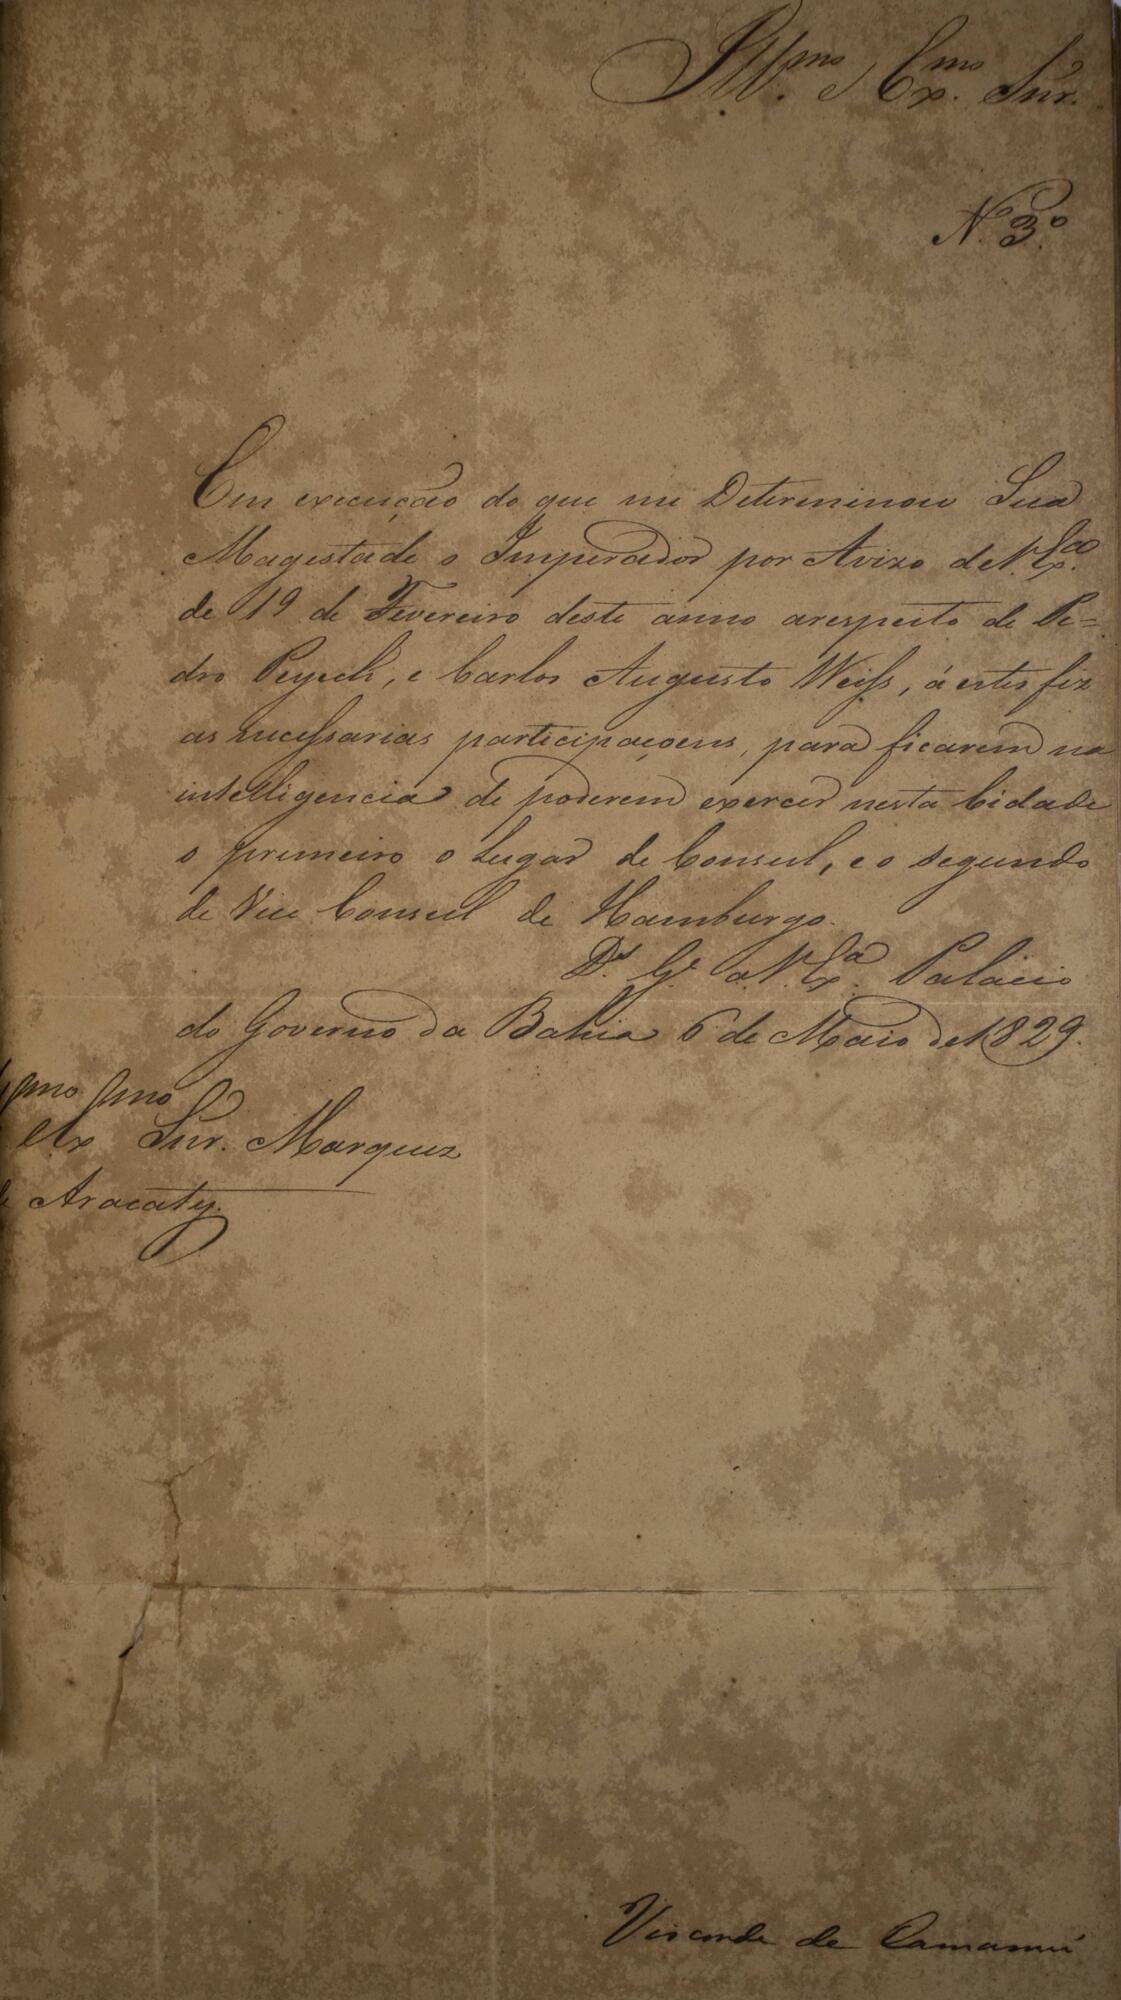 Ill.mo Ex.mo Snr.
N. 3.º
Em execução do que me Determinou Sua
Magestade o Imperador por Avizo de V. Ex.ca
de 19 de Fevereiro deste anno arespeito de Pe=
dro Peych, e Carlos Augusto Weiss, á estes fiz
as necessarias participaçoens, para ficarem na
intelligencia de poderem exercer nesta Cidade
o primeiro o Lugar de Consul, e o segundo
de Vice Consul de Hamburgo.
D.s G.e a V. Ex.a Palacio
do Governo da Bahia 6 de Maio de 1829.
mo mo
Ex Snr. Marquez
de Aracaty.
Visconde de Camamú